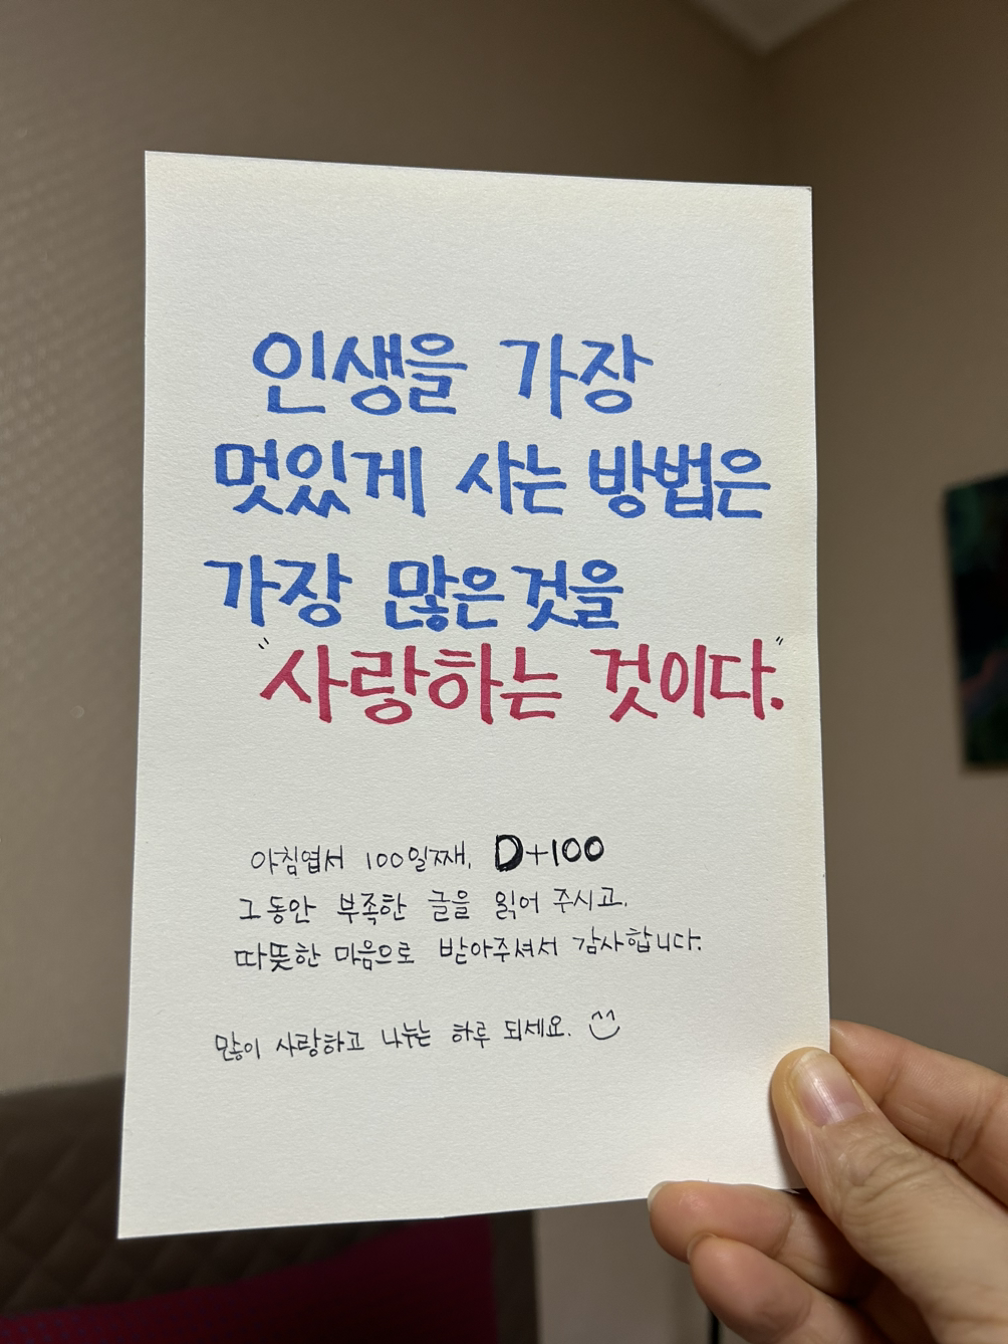 인생을 가장
멋있게 사는 방법은
가장 많은 것을
"사랑하는 것이다."
아침엽서 100일째, D+100
그동안 부족한 글을 읽어 주시고,
따뜻한 마음으로 받아주셔서 감사합니다.
많이 사랑하고 나누는 하루 되세요.